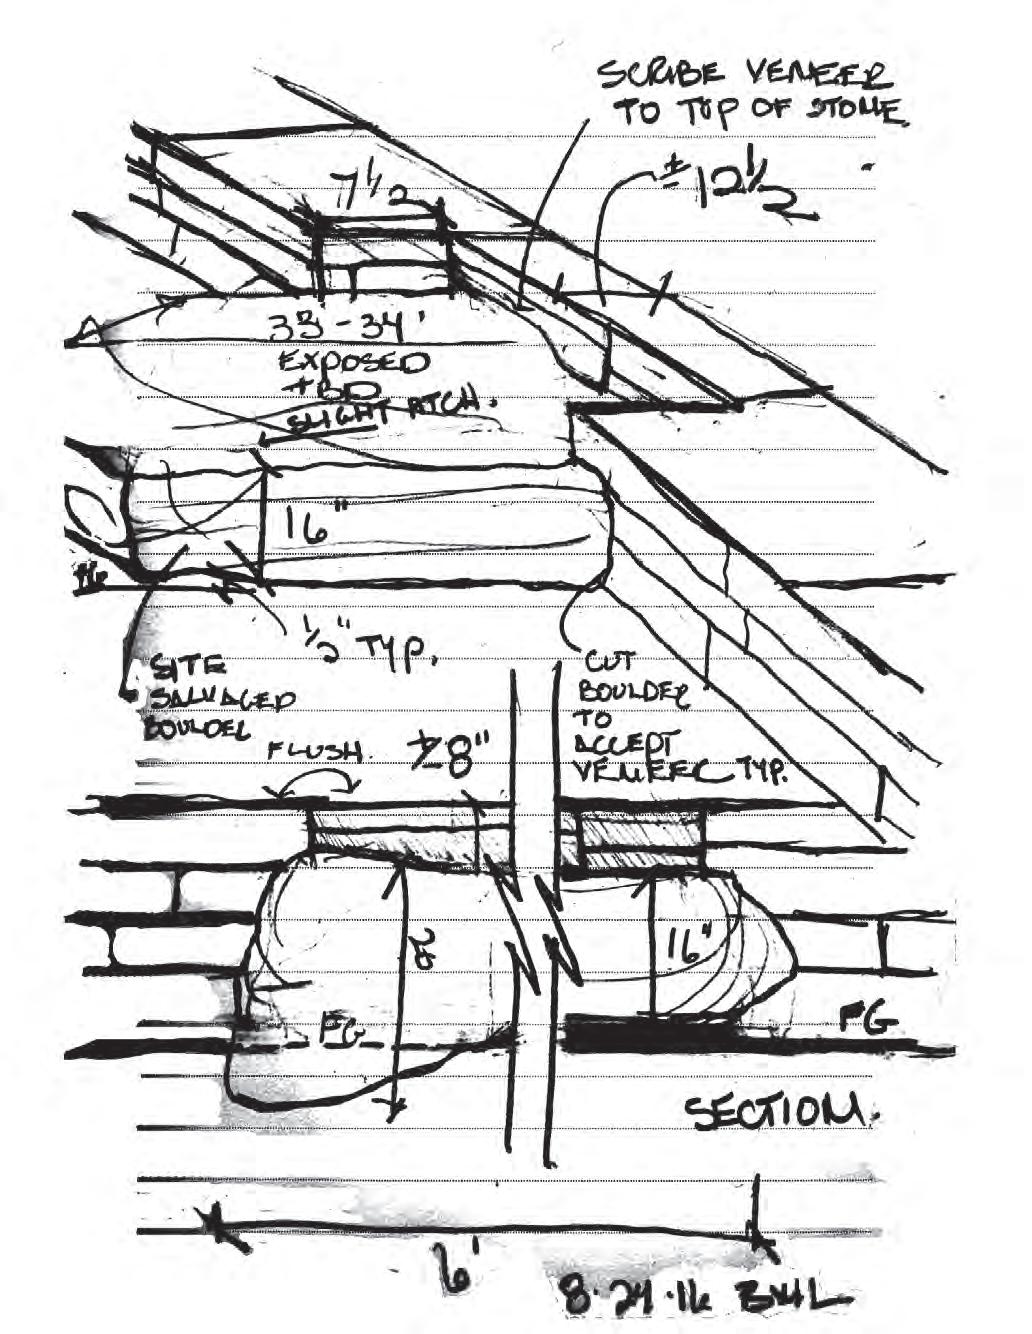 SCRIBE VENEER
TO TOP OF STONE.
7 1/2
± 12 1/2
EXPOSED
SLIGHT
16"
1/2" TYP.
SITE
SALVAGED
BOULDER
CUT
BOULDER
TO
ACCEPT
VENEER TYP.
FLUSH.
±8"
16"
FG
FG
SECTION.
6'
8·24·16